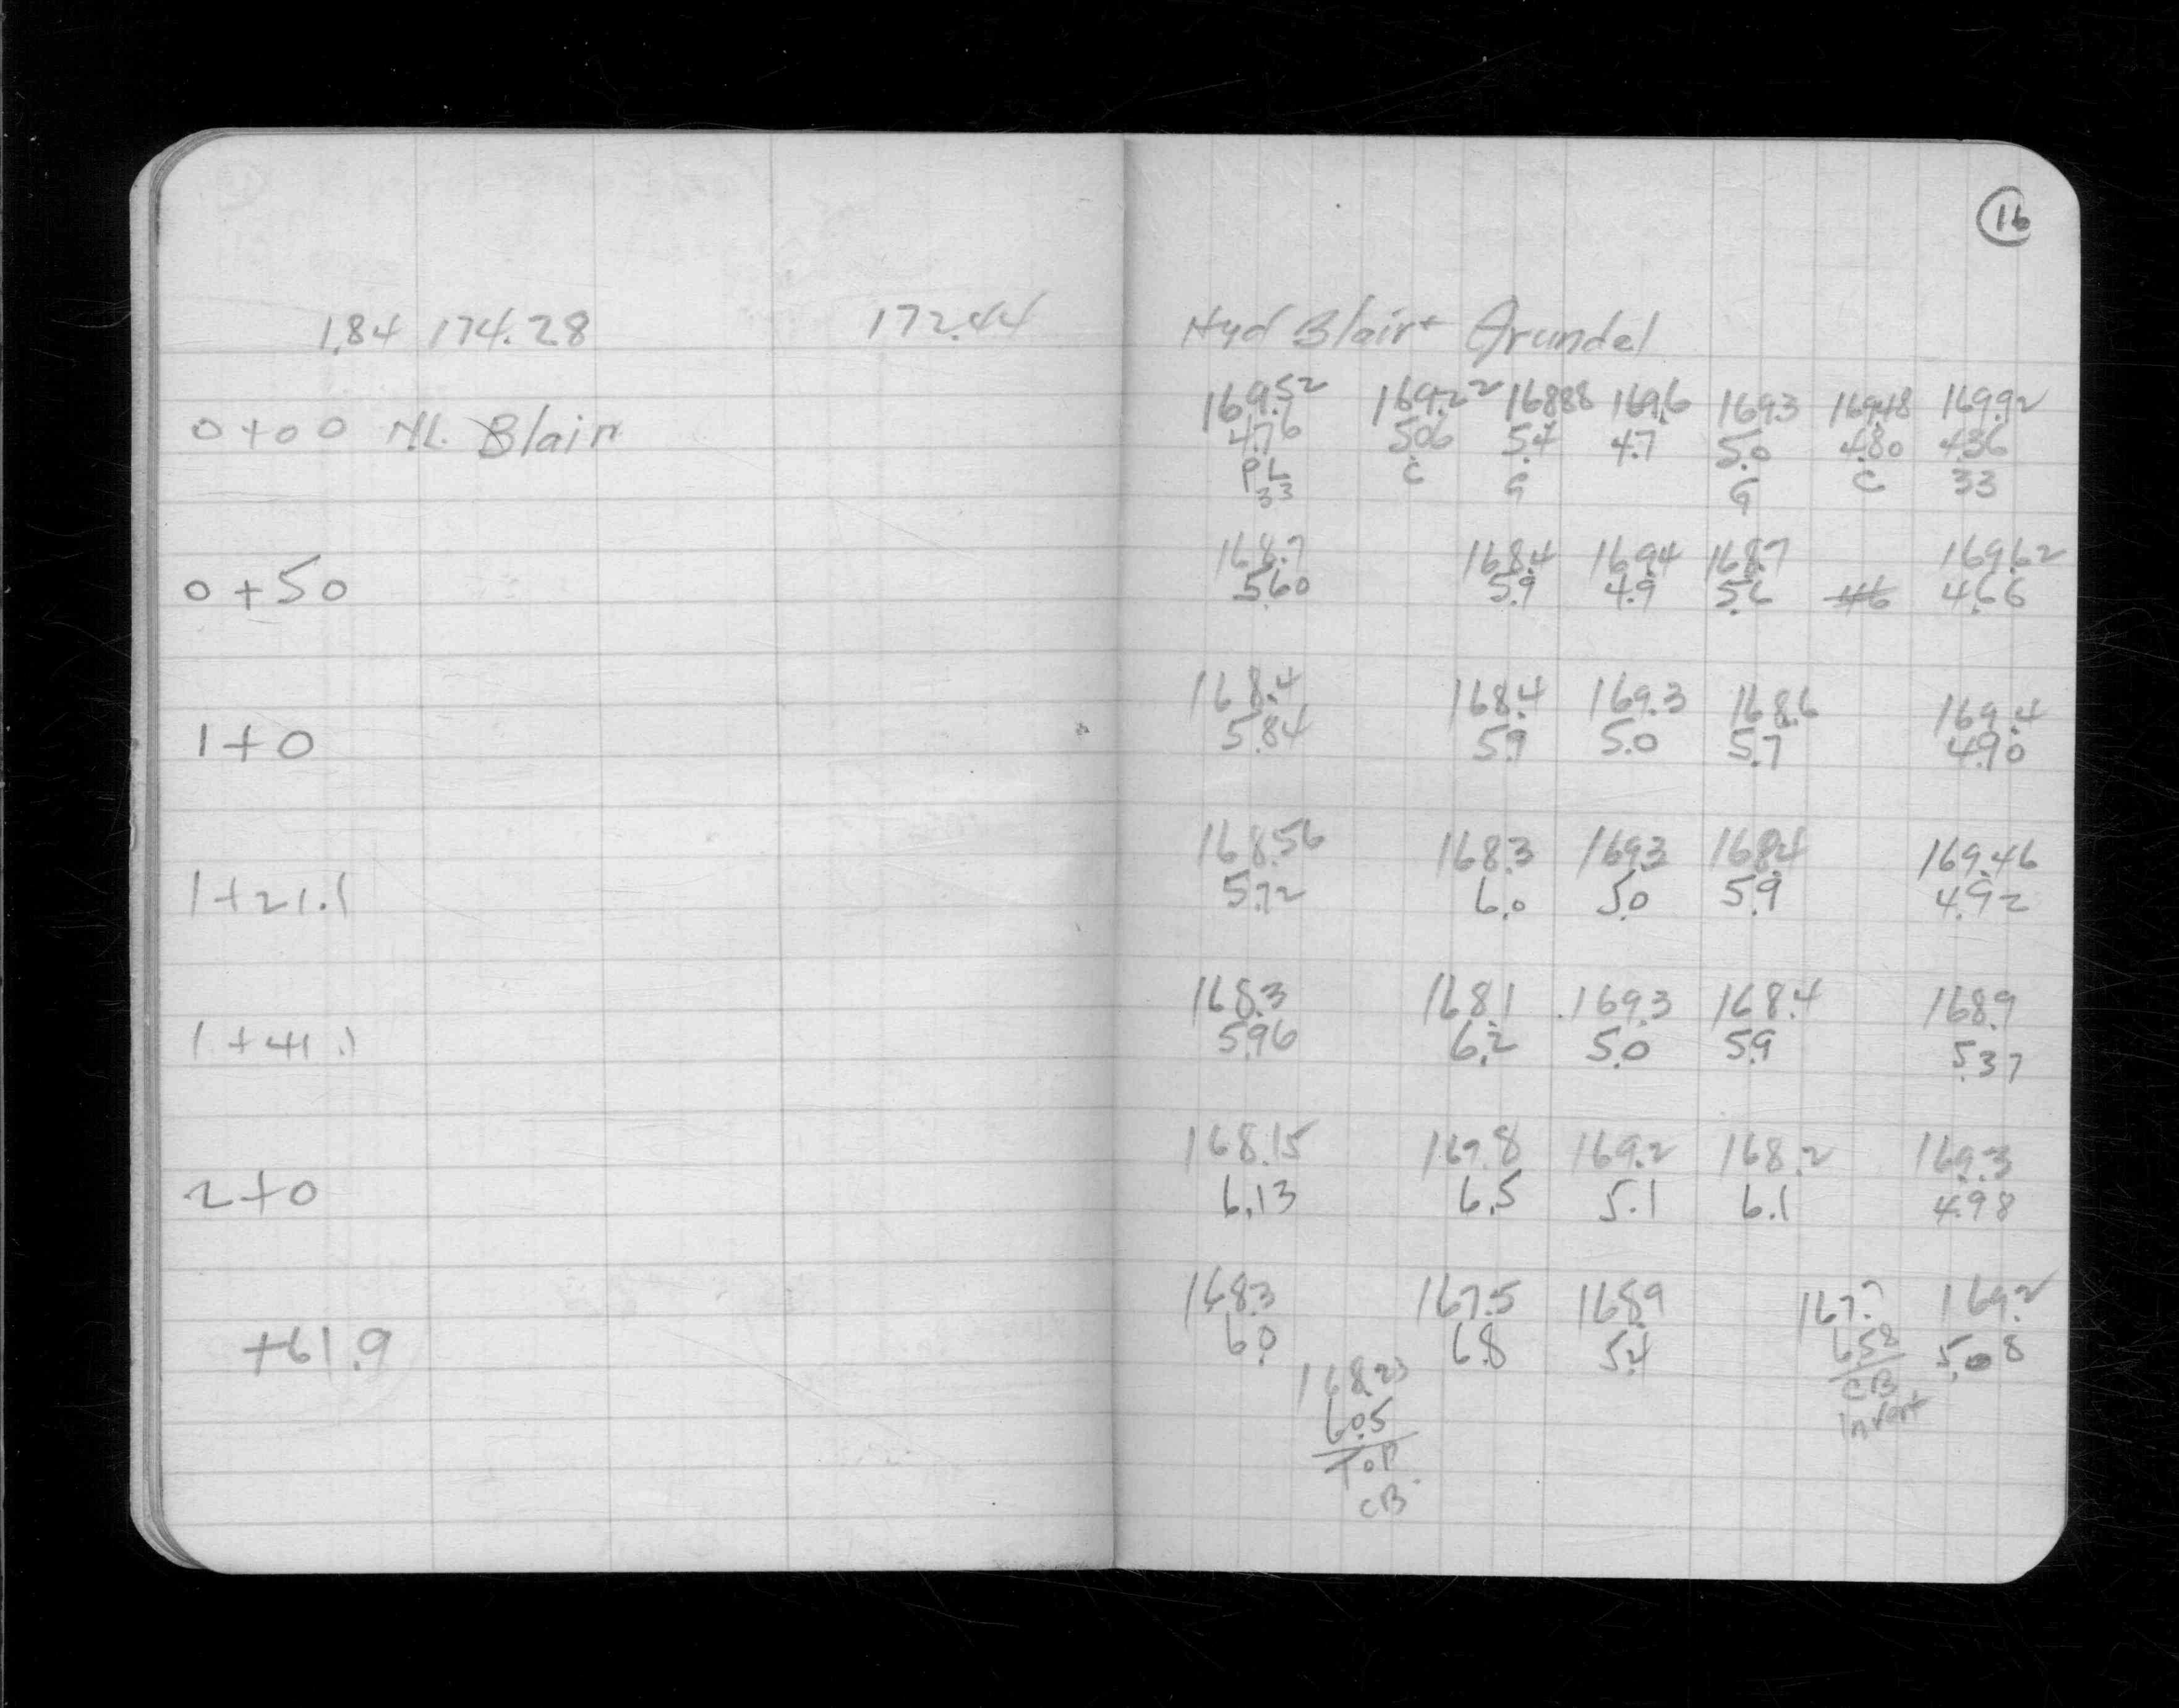 16
1.84 174.28 172.44 Hyd Blair + Arundel
169.52 169.22 168.88 169.6 169.3 169.48 169.92
0+00 N.L. Blair 4.76 5.06 5.4 4.7 5.0 4.80 4.36
PL C G G C 33
33
168.7 168.4 169.4 168.7 169.62
0+50 5.60 5.9 4.9 5.6 4.66
168.4 168.4 169.3 168.6 169.4
1+0 5.84 5.9 5.0 5.7 4.90
168.56 168.3 169.3 168.4 169.46
1+21.1 5.72 6.0 5.0 5.9 4.92
168.3 168.1 169.3 168.4 168.9
1+41.1 5.96 6.2 5.0 5.9 5.37
168.15 167.8 169.2 168.2 169.3
2+0 6.13 6.5 5.1 6.1 4.98
168.3 167.5 168.9 167.7 169.2
+61.9 6.0 6.8 5.4 6.58 5.08
168.23 CB
6.05 Invert
Top
CB